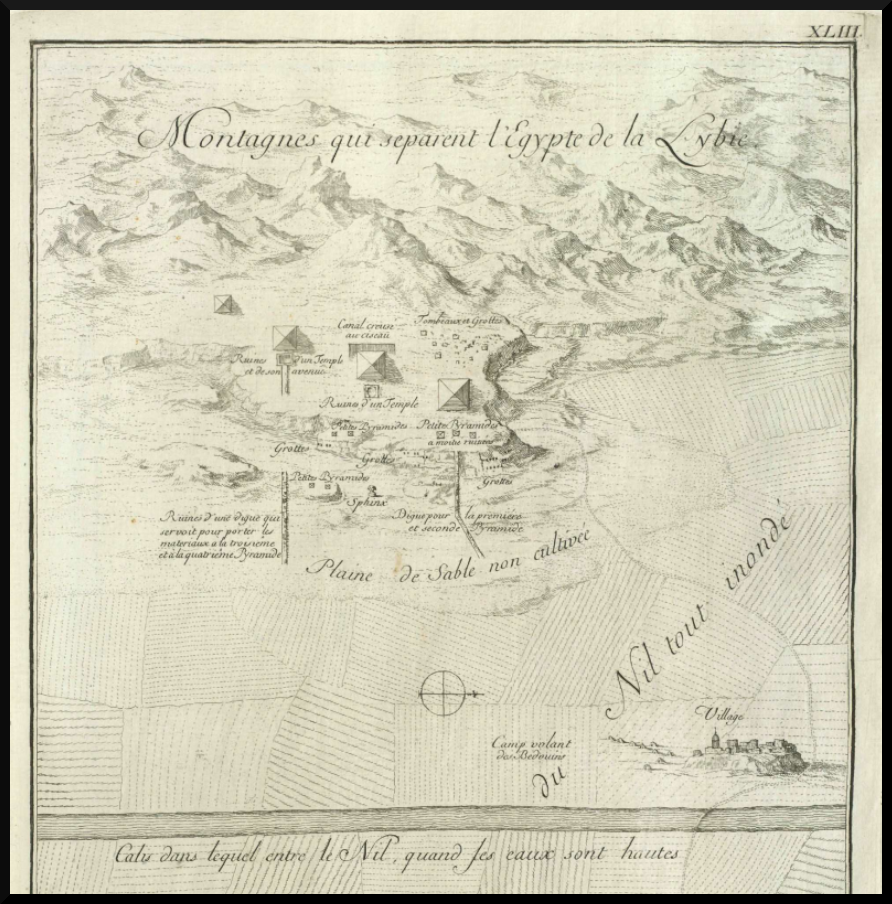 XLIII.
Montagnes qui separent l'Egypte de la Lybie.
Canal creusé
au ciseau
Tombeaux et Grottes
Ruines d'un Temple
et de son avenue
Ruines d'un Temple
Petites Pyramides
Petites Pyramides
a moitie ruinées
Grottes
Grottes
Grottes
Petites Pyramides
Sphinx
Ruines d'une digue qui
servoit pour porter les
materiaux a la troisieme
et à la quatriême Pyramide
Digue pour la premiere
et seconde Pyramide
Plaine de Sable non cultivée
du Nil tout inondé
Village
Camp volant
des Bedouins
Calis dans lequel entre le Nil, quand ses eaux sont hautes